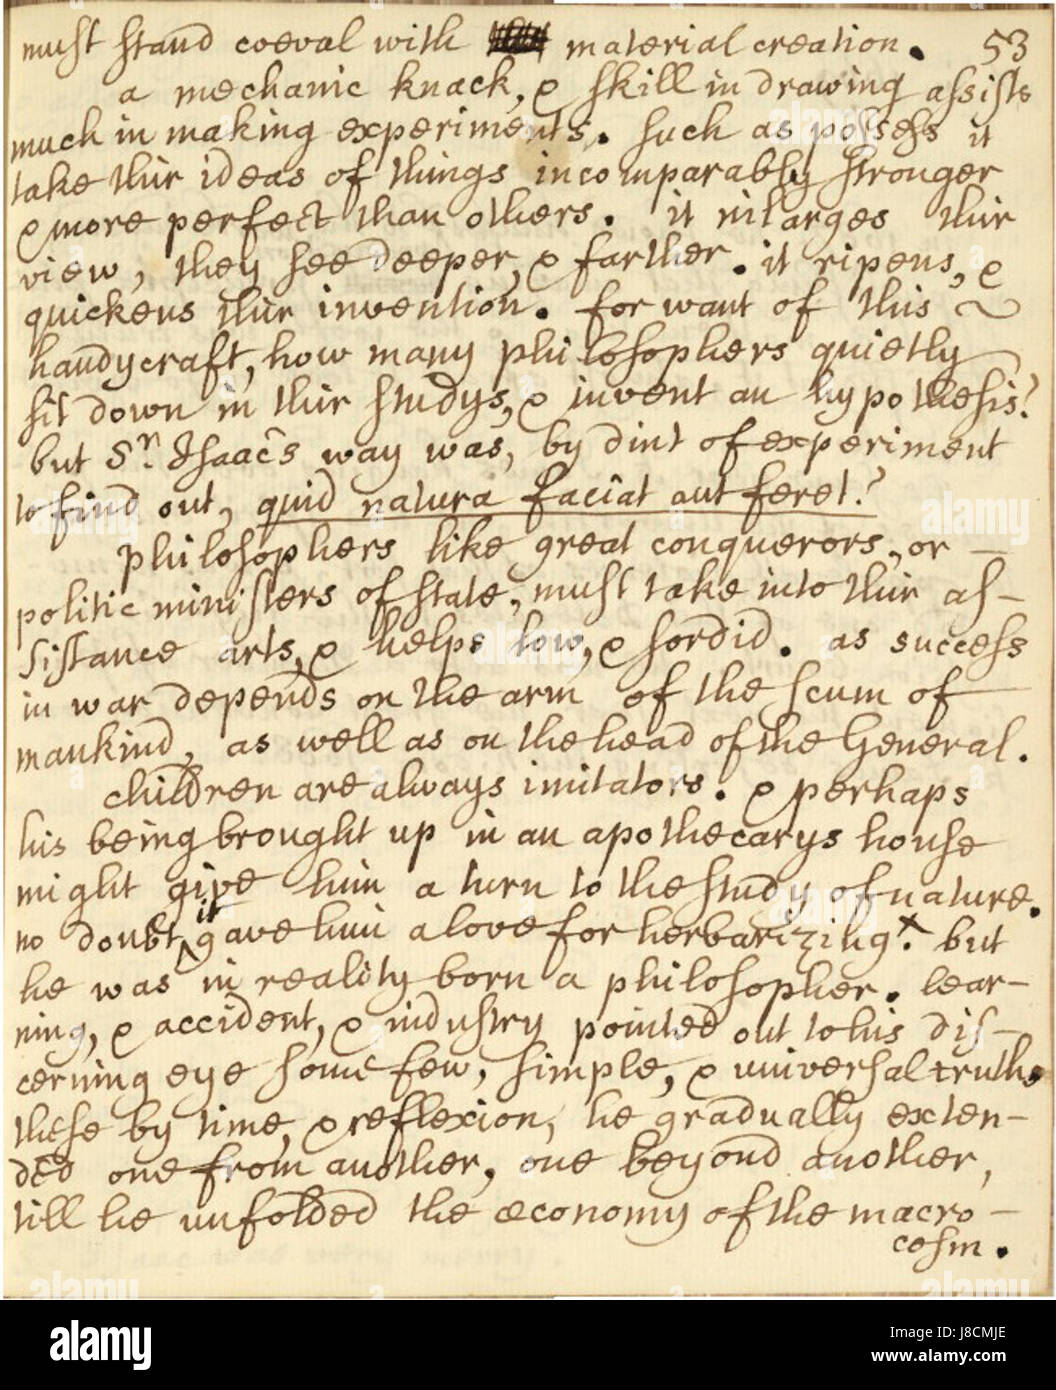 must stand coeval with material creation. 53
a mechanic knack, & skill in drawing assists
much in making experiments. such as possess it
take thir ideas of things incomparably stronger
& more perfect than others. it inlarges thir
view, they see deeper, & farther. it ripens, &
quickens thir invention. for want of this ~
handycraft, how many philosophers quietly
sit down in thir studys, & invent an hypothesis?
but Sr. Isaacs way was, by dint of experiment
to find out, quid natura faciat aut feret?
philosophers like great conquerors, or —
politic ministers of state, must take into thir as-
sistance arts, & helps low, & sordid. as success
in war depends on the arm of the scum of
mankind, as well as on the head of the General.
children are always imitators. & perhaps
his being brought up in an apothecarys house
might give him a turn to the study of nature.
no doubt, it gave him a love for herbarizing x. but
he was in reality born a philosopher. lear-
ning, & accident, & industry pointed out to his dis-
cerning eye some few, simple, & universal truths
these by time, & reflexion, he gradually exten-
ded one from another, one beyond another,
till he unfolded the œconomy of the macro-
cosm.
alamy
Image ID: J8CMJE
www.alamy.com